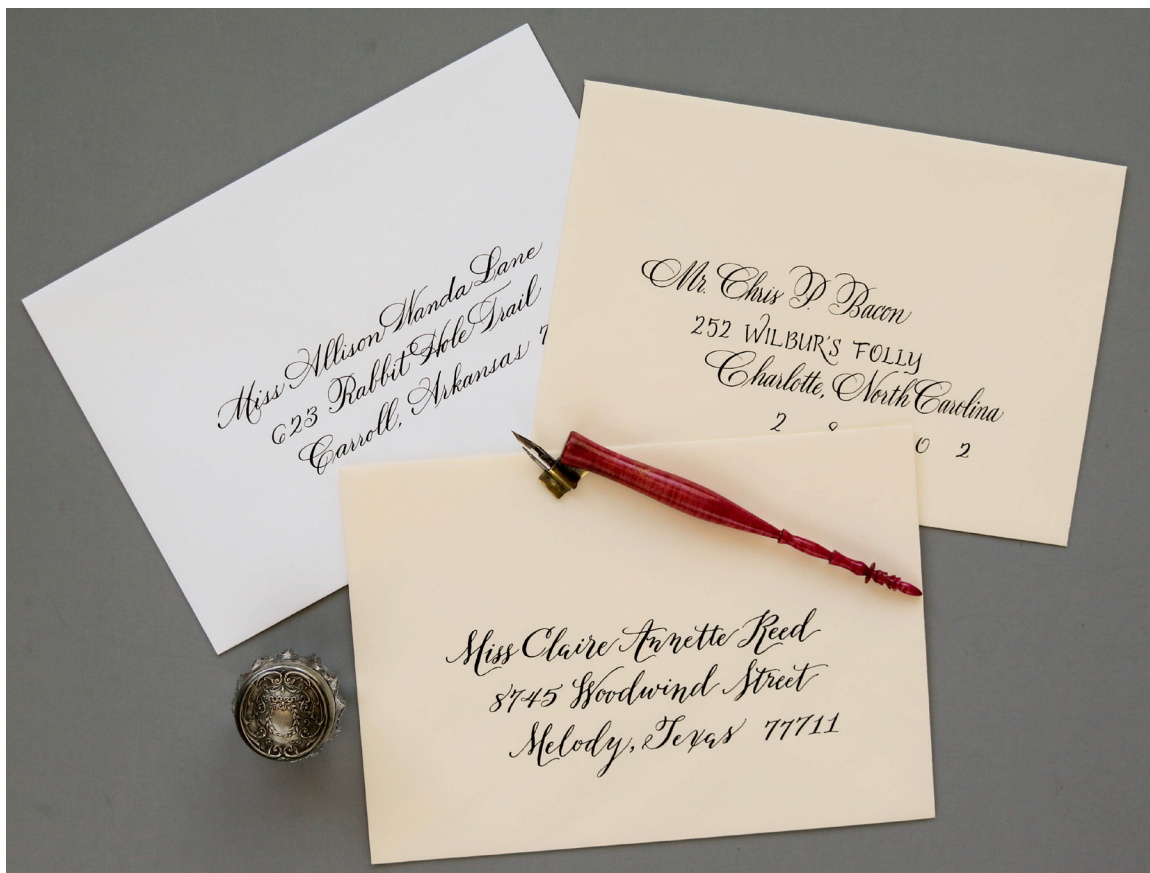 Miss Allison Wanda Lane
623 Rabbit Hole Trail
Carroll, Arkansas 7
Mr. Chris P. Bacon
252 WILBUR'S FOLLY
Charlotte, North Carolina
2 0 2
Miss Claire Annette Reed
8745 Woodwind Street
Melody, Texas 77711